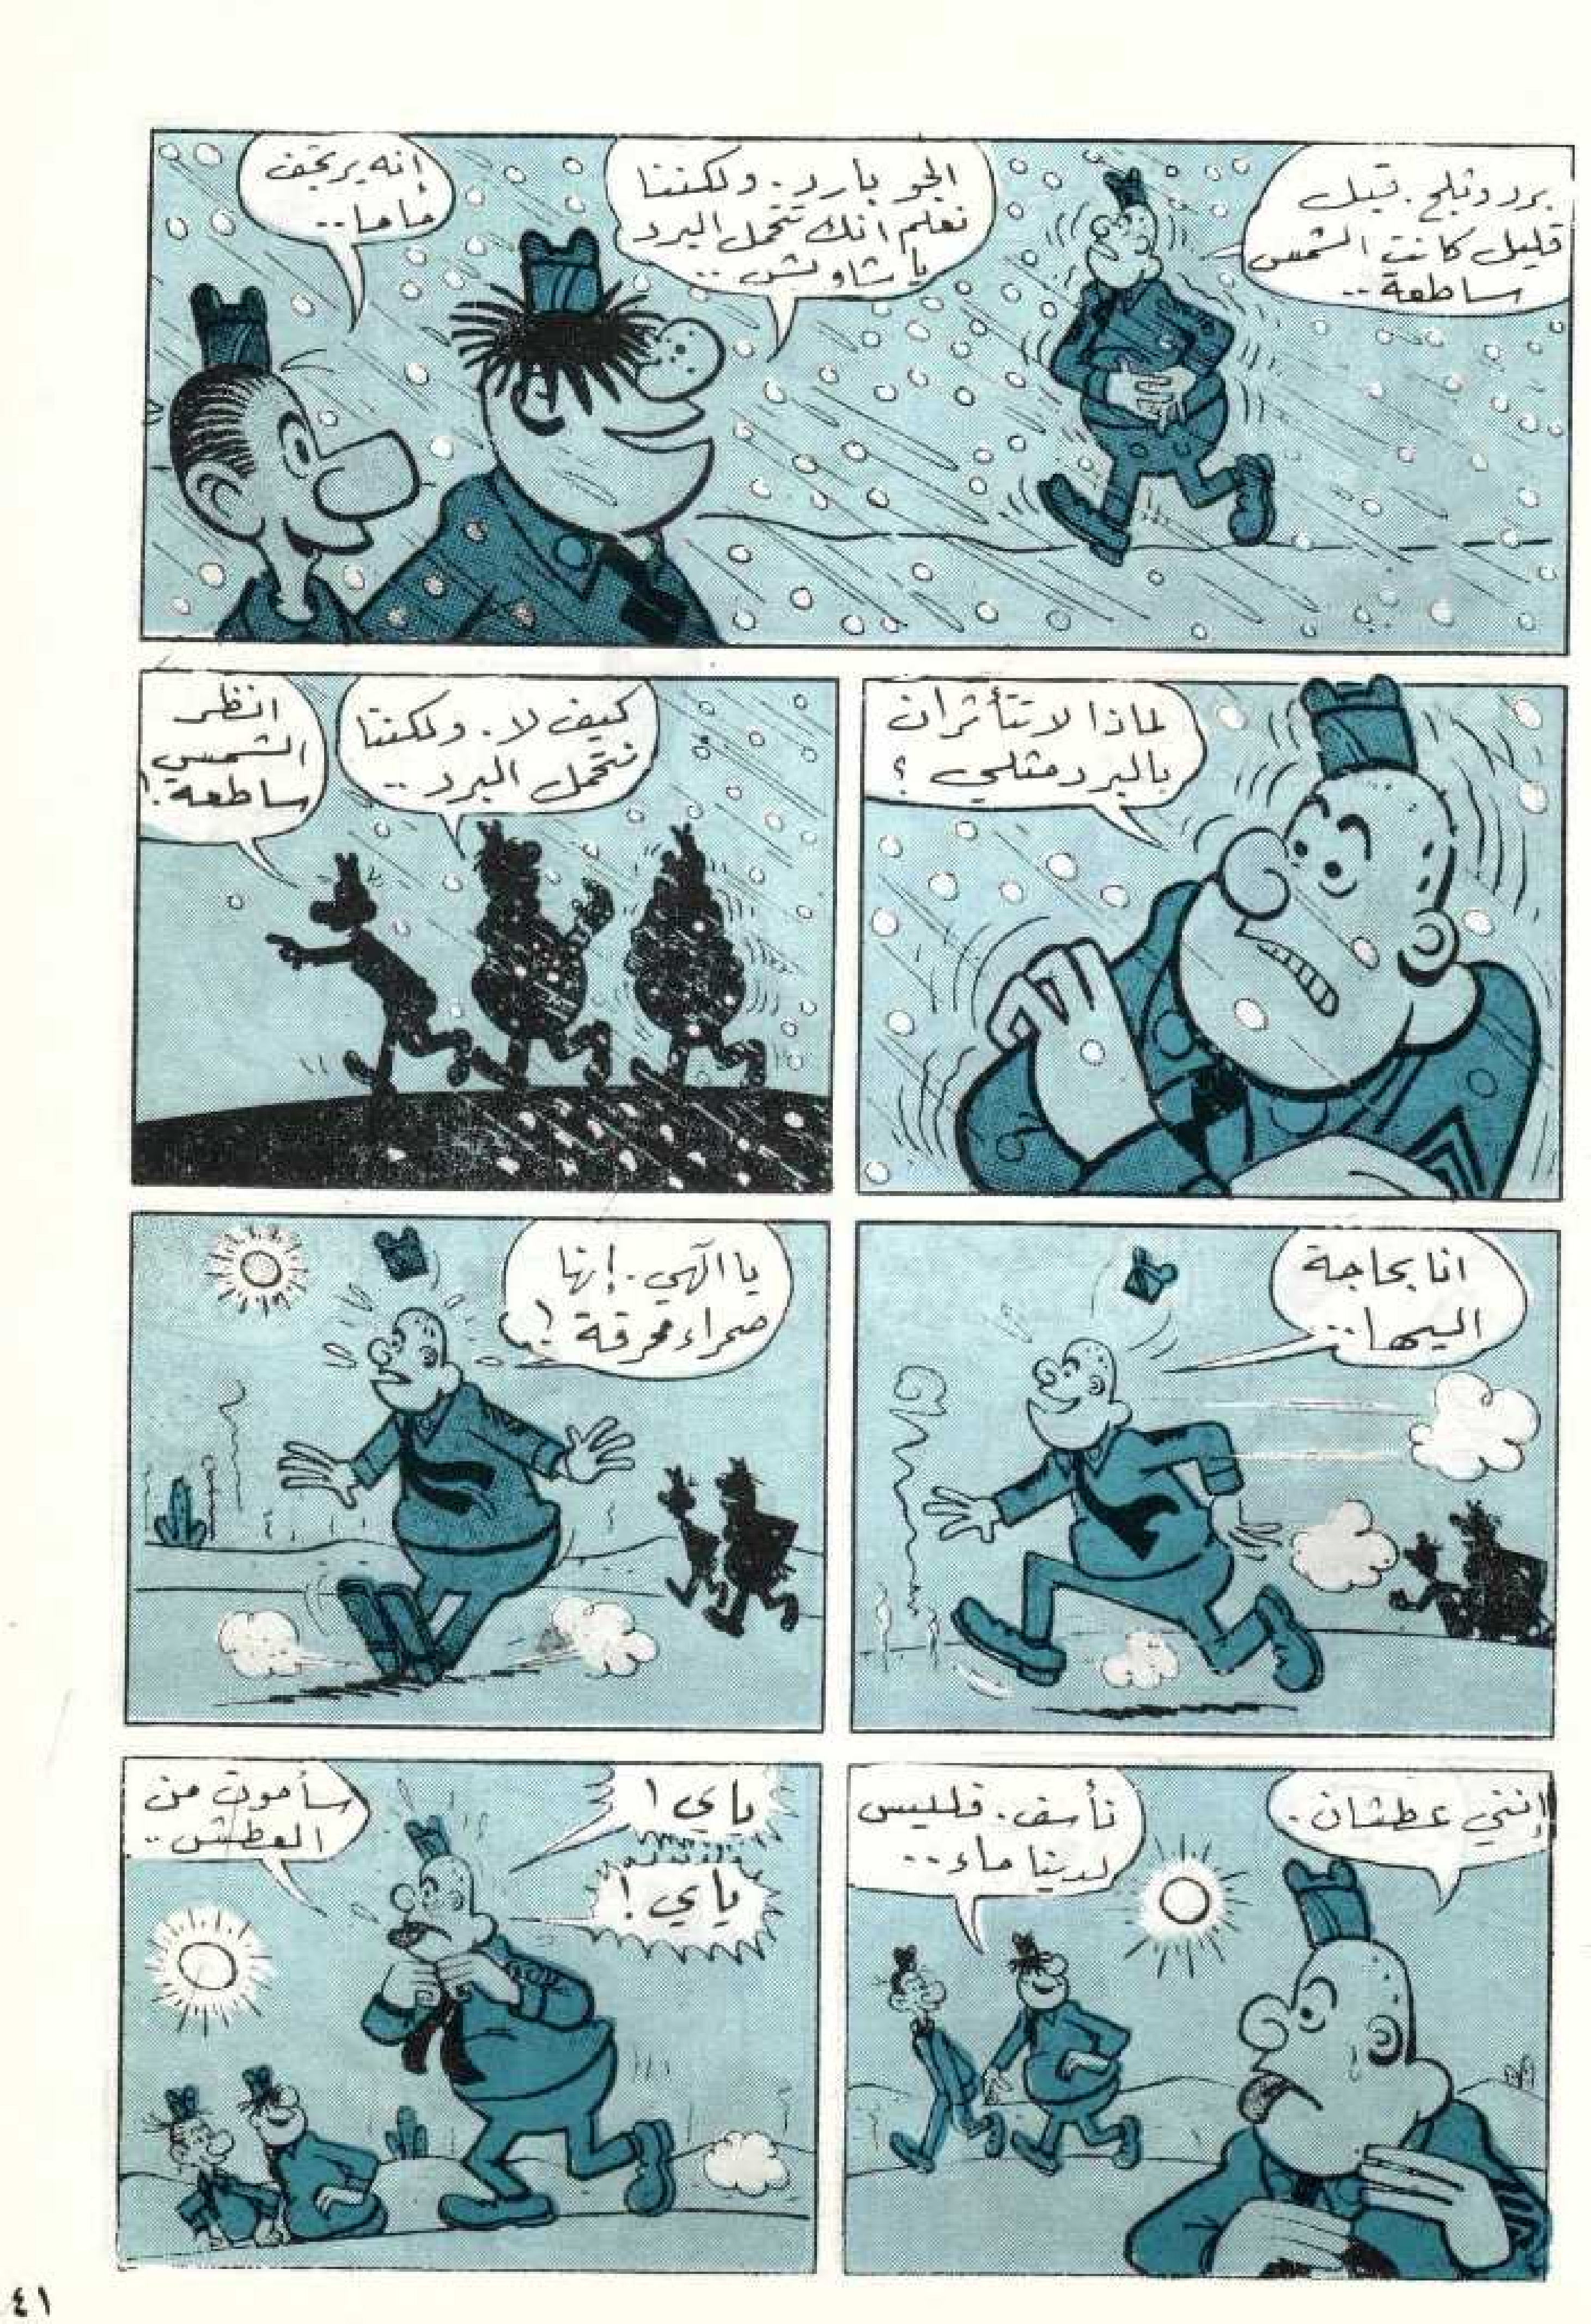 برد وثلج. قبل
قليل كانت الشمس
ساطعة..
الجو بارد. ولكننا
نعلم أنك تتحمل البرد
يا شاويش..
إنه يرتجف
هاها..
لماذا لا تتأثران
بالبرد مثلي ؟
كيف لا. ولكننا
نتحمل البرد..
انظر
الشمس
ساطعة!
انا بحاجة
اليها..
يا آلهي. إنها
صحراء محرقة !
إنني عطشان.
نأسف. فليس
لدينا ماء..
ياي !
ياي !
سأموت من
العطش..
٤١